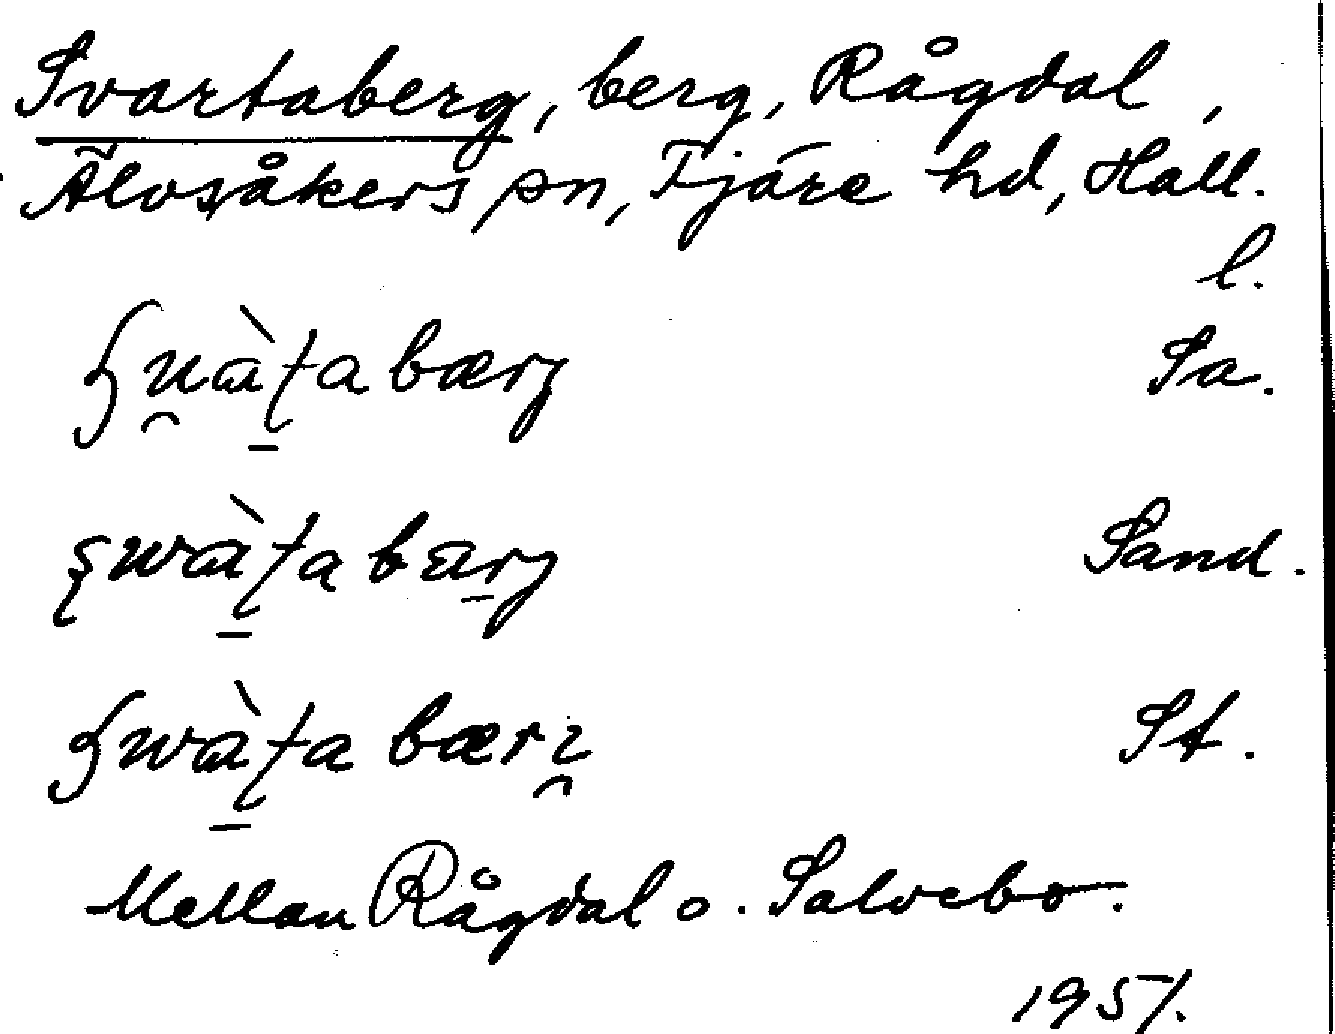 Svartaberg, berg, Rågdal,
Älvsåkers sn, Fjäre hd, Hall.
l.
Sa.
Sand.
St.
Mellan Rågdal o. Salvebo.
1951.